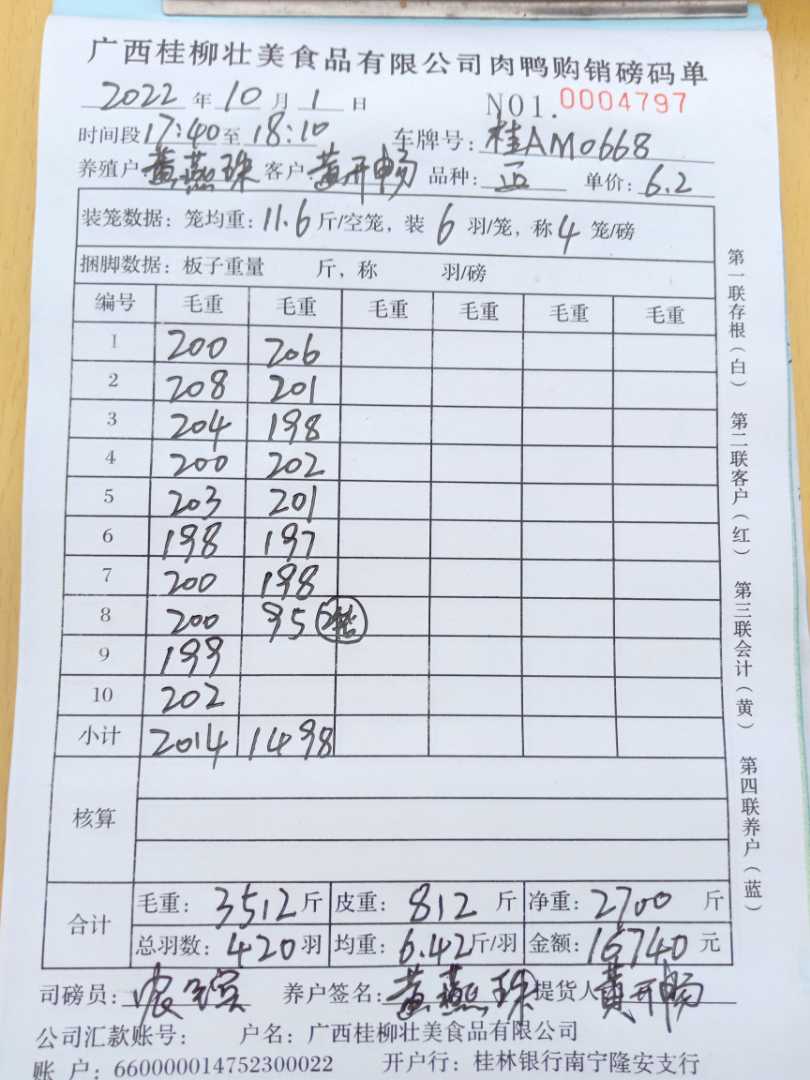 广西桂柳壮美食品有限公司肉鸭购销磅码单
2022 年 10 月 1 日 NO1. 0004797
时间段 17:40 至 18:10 车牌号: 桂AM0668
养殖户 黄燕珠 客户 黄开畅 品种: 正 单价: 6.2
装笼数据: 笼均重: 11.6 斤/空笼, 装 6 羽/笼, 称 4 笼/磅
捆脚数据: 板子重量 斤, 称 羽/磅
编号 毛重 毛重 毛重 毛重 毛重 毛重
1 200 206
2 208 201
3 204 198
4 200 202
5 203 201
6 198 197
7 200 198
8 200 95
9 199
10 202
小计 2014 1498
核算
合计
毛重: 3512 斤 皮重: 812 斤 净重: 2700 斤
总羽数: 420 羽 均重: 6.42 斤/羽 金额: 16740 元
司磅员: 养户签名: 黄燕珠 提货人 黄开畅
公司汇款账号: 户名: 广西桂柳壮美食品有限公司
账 户: 660000014752300022 开户行: 桂林银行南宁隆安支行
第一联存根(白)
第二联客户(红)
第三联会计(黄)
第四联养户(蓝)